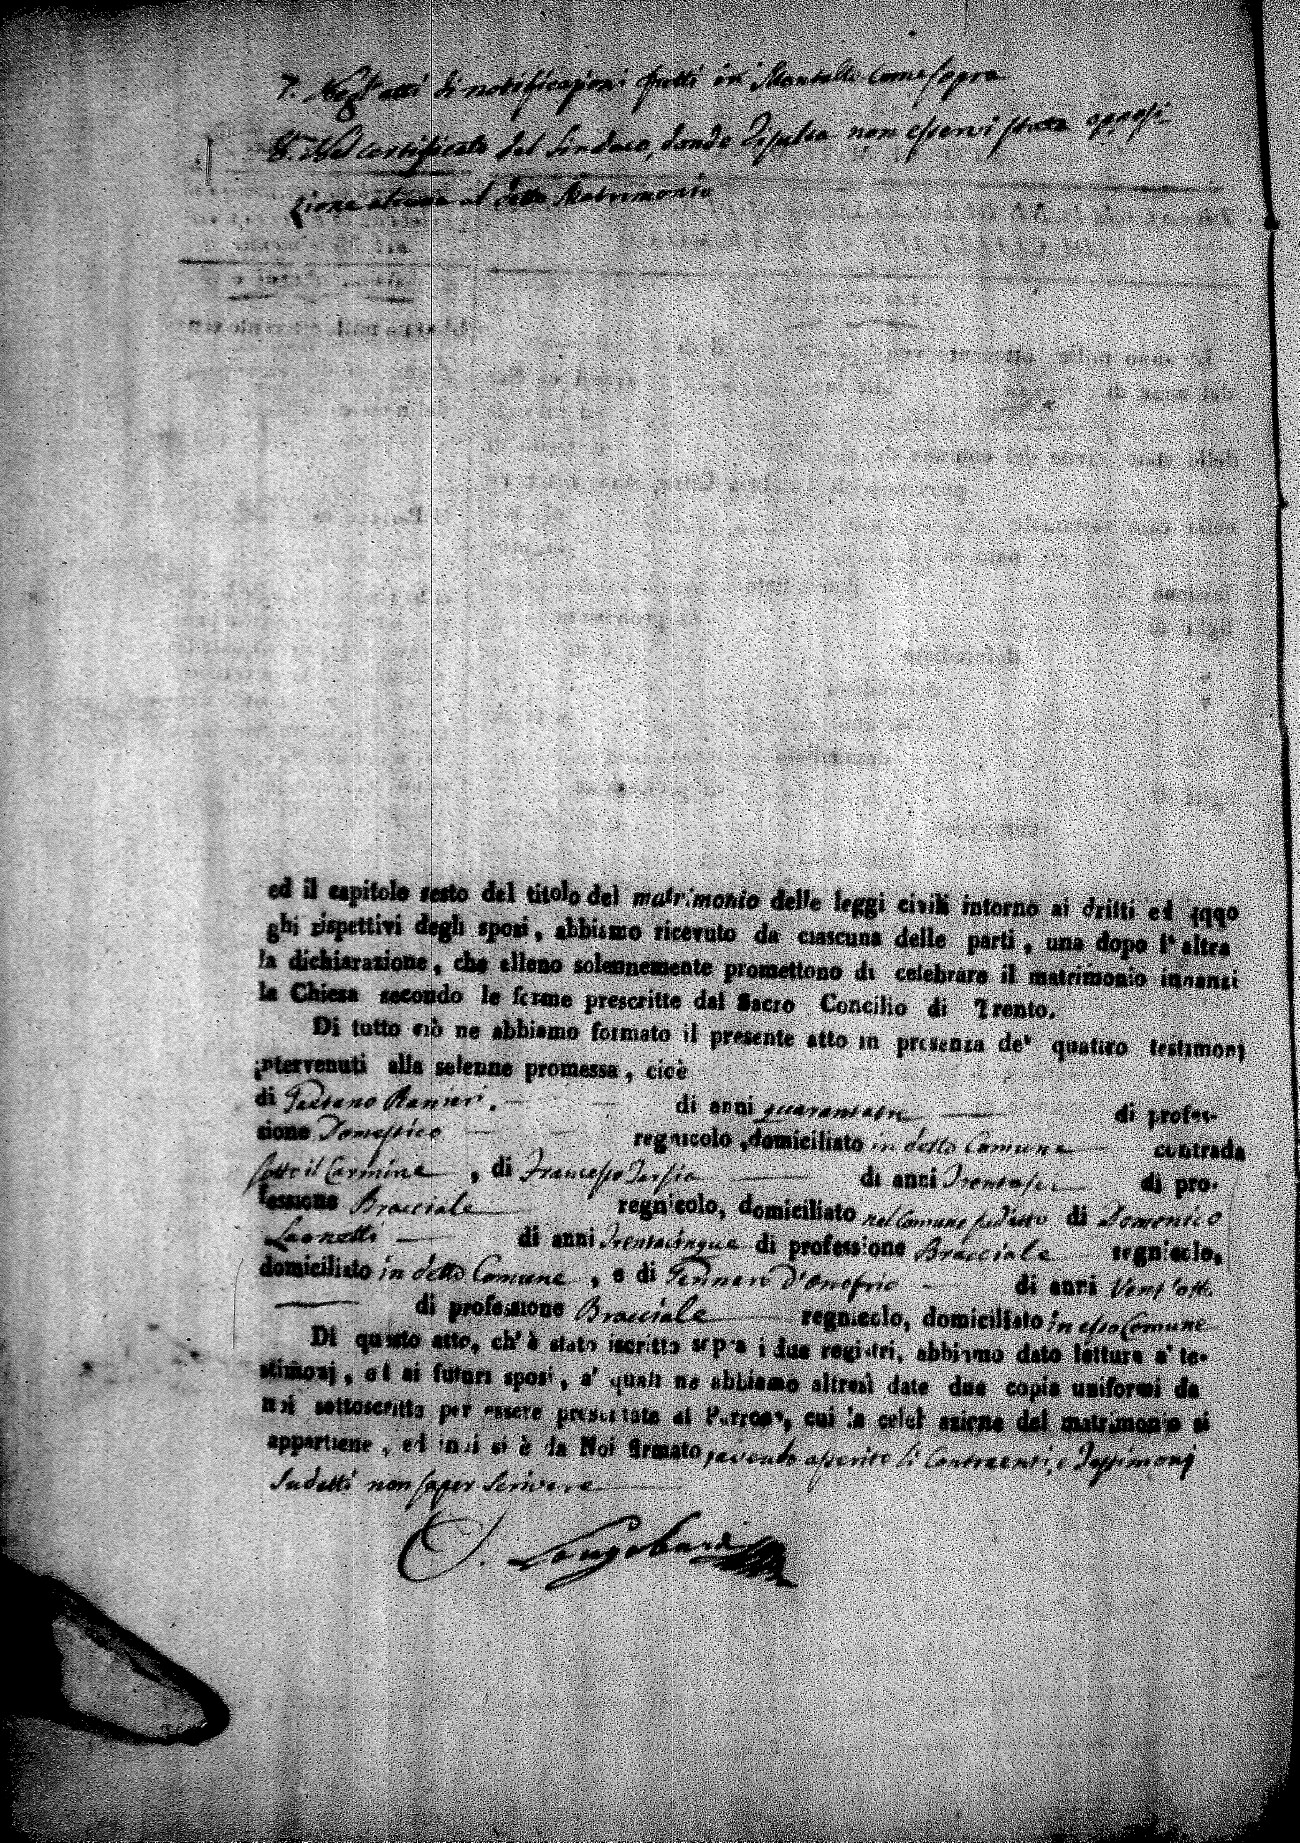 7. Negl'atti di notificazioni fatti in Montalto come sopra
8. Nel certificato del Sindaco, donde risulta non esservi stata opposi
zione alcuna al detto Matrimonio
ed il capitolo sesto del titolo del matrimonio delle leggi civili intorno ai dritti ed obbli
ghi rispettivi degli sposi, abbiamo ricevuto da ciascuna delle parti, una dopo l'altra
la dichiarazione, che elleno solennemente promettono di celebrare il matrimonio innanzi
la Chiesa secondo le forme prescritte dal Sacro Concilio di Trento.
Di tutto ciò ne abbiamo formato il presente atto in presenza de' quattro testimonj
intervenuti alla solenne promessa, cioè
di Gaetano Ranieri. di anni di profes-
sione Domestico regnicolo, domiciliato in detto Comune contrada
sotto il Carmine, di Francesco di anni Trentasei di pro-
fessione Bracciale regnicolo, domiciliato nel Comune suddetto di Domenico
Leonetti di anni Trentacinque di professione Bracciale regnicolo,
domiciliato in detto Comune, e di Gennaro D'Onofrio di anni Vent'otto
di professione Bracciale regnicolo, domiciliato in esso Comune
Di questo atto, ch'è stato iscritto sopra i due registri, abbiamo dato lettura a' te-
stimonj, ed ai futuri sposi, a' quali ne abbiamo altresì date due copie uniformi da
noi sottoscritte per essere presentate al Parroco, cui la celebrazione del matrimonio si
appartiene, ed indi si è da Noi firmato, avendo asserito li Contraenti, e Testimonj
sudetti non saper scrivere
Longobardi